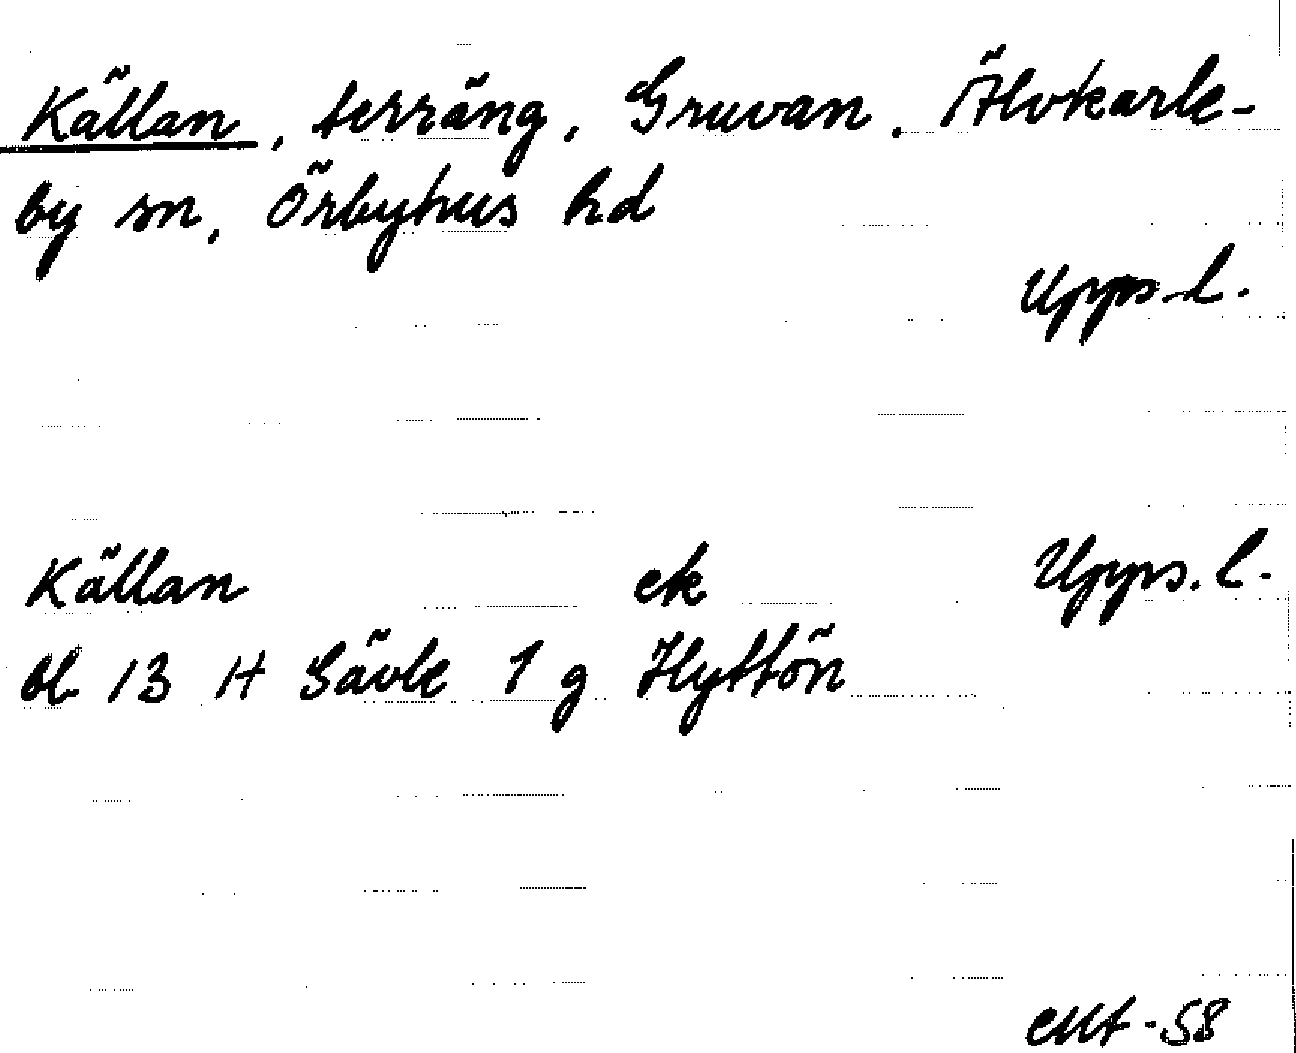 Källan, terräng, Gruvan, Älvkarle-
by sn, Örbyhus hd
Upps. l.
Källan ek Upps. l.
bl 13 H Gävle 1 g Hyttön
-58